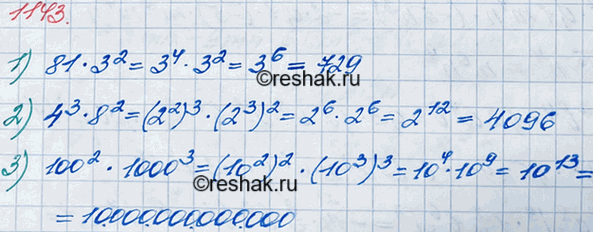 1143.
1) 81 · 3² = 3⁴ · 3² = 3⁶ = 729
©reshak.ru
2) 4³ · 8² = (2²)³ · (2³)² = 2⁶ · 2⁶ = 2¹² = 4096
3) 100² · 1000³ = (10²)² · (10³)³ = 10⁴ · 10⁹ = 10¹³ =
©reshak.ru
= 10.000.000.000.000